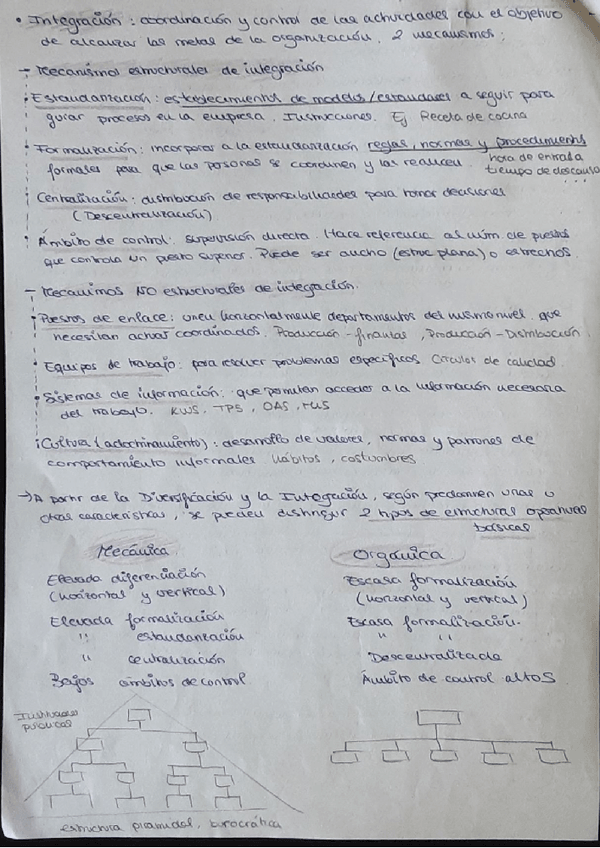 • Integración: coordinación y control de las actividades con el objetivo
de alcanzar las metas de la organización. 2 mecanismos:
- Mecanismos estructurales de integración
• Estandarización: establecimientos de modelos/estandares a seguir para
guiar procesos en la empresa. Instrucciones. Ej Receta de cocina
• Formalización: incorporar a la estandarización reglas, normas y procedimientos
formales para que las personas se coordinen y las realicen. hora de entrada
tiempo de descanso
Centralización: distribución de responsabilidades para tomar decisiones
(Descentralización)
• Ámbito de control: supervisión directa. Hace referencia al núm de puestos
que controla un puesto superior. Puede ser ancho (estruc plana) o estrechos.
- Mecanimos NO estructurales de integración.
• Puestos de enlace: unen horizontalmente departamentos del mismo nivel que
necesitan actuar coordinados. Producción-finanzas, Producción-Distribución.
• Equipos de trabajo: para resolver problemas específicos Círculos de calidad.
• Sistemas de información: que permiten acceder a la información necesaria
del trabajo. KWS, TPS, OAS, MIS
• Cultura (adoctrinamiento): desarrollo de valores, normas y patrones de
comportamiento informales hábitos, costumbres
→ A partir de la Diversificación y la Integración, según predominen unas u
otras características, se pueden distinguir 2 tipos de estructuras operativas
básicas
Mecánica
Elevada diferenciación
(horizontal y vertical)
Elevada formalización
" estandarización
" centralización
Bajos ámbitos de control
Instituciones
públicas
estructura piramidal, burocrática
Orgánica
Escasa formalización
(horizontal y vertical)
Escasa formalización.
" "
Descentralizada
Ámbito de control altos